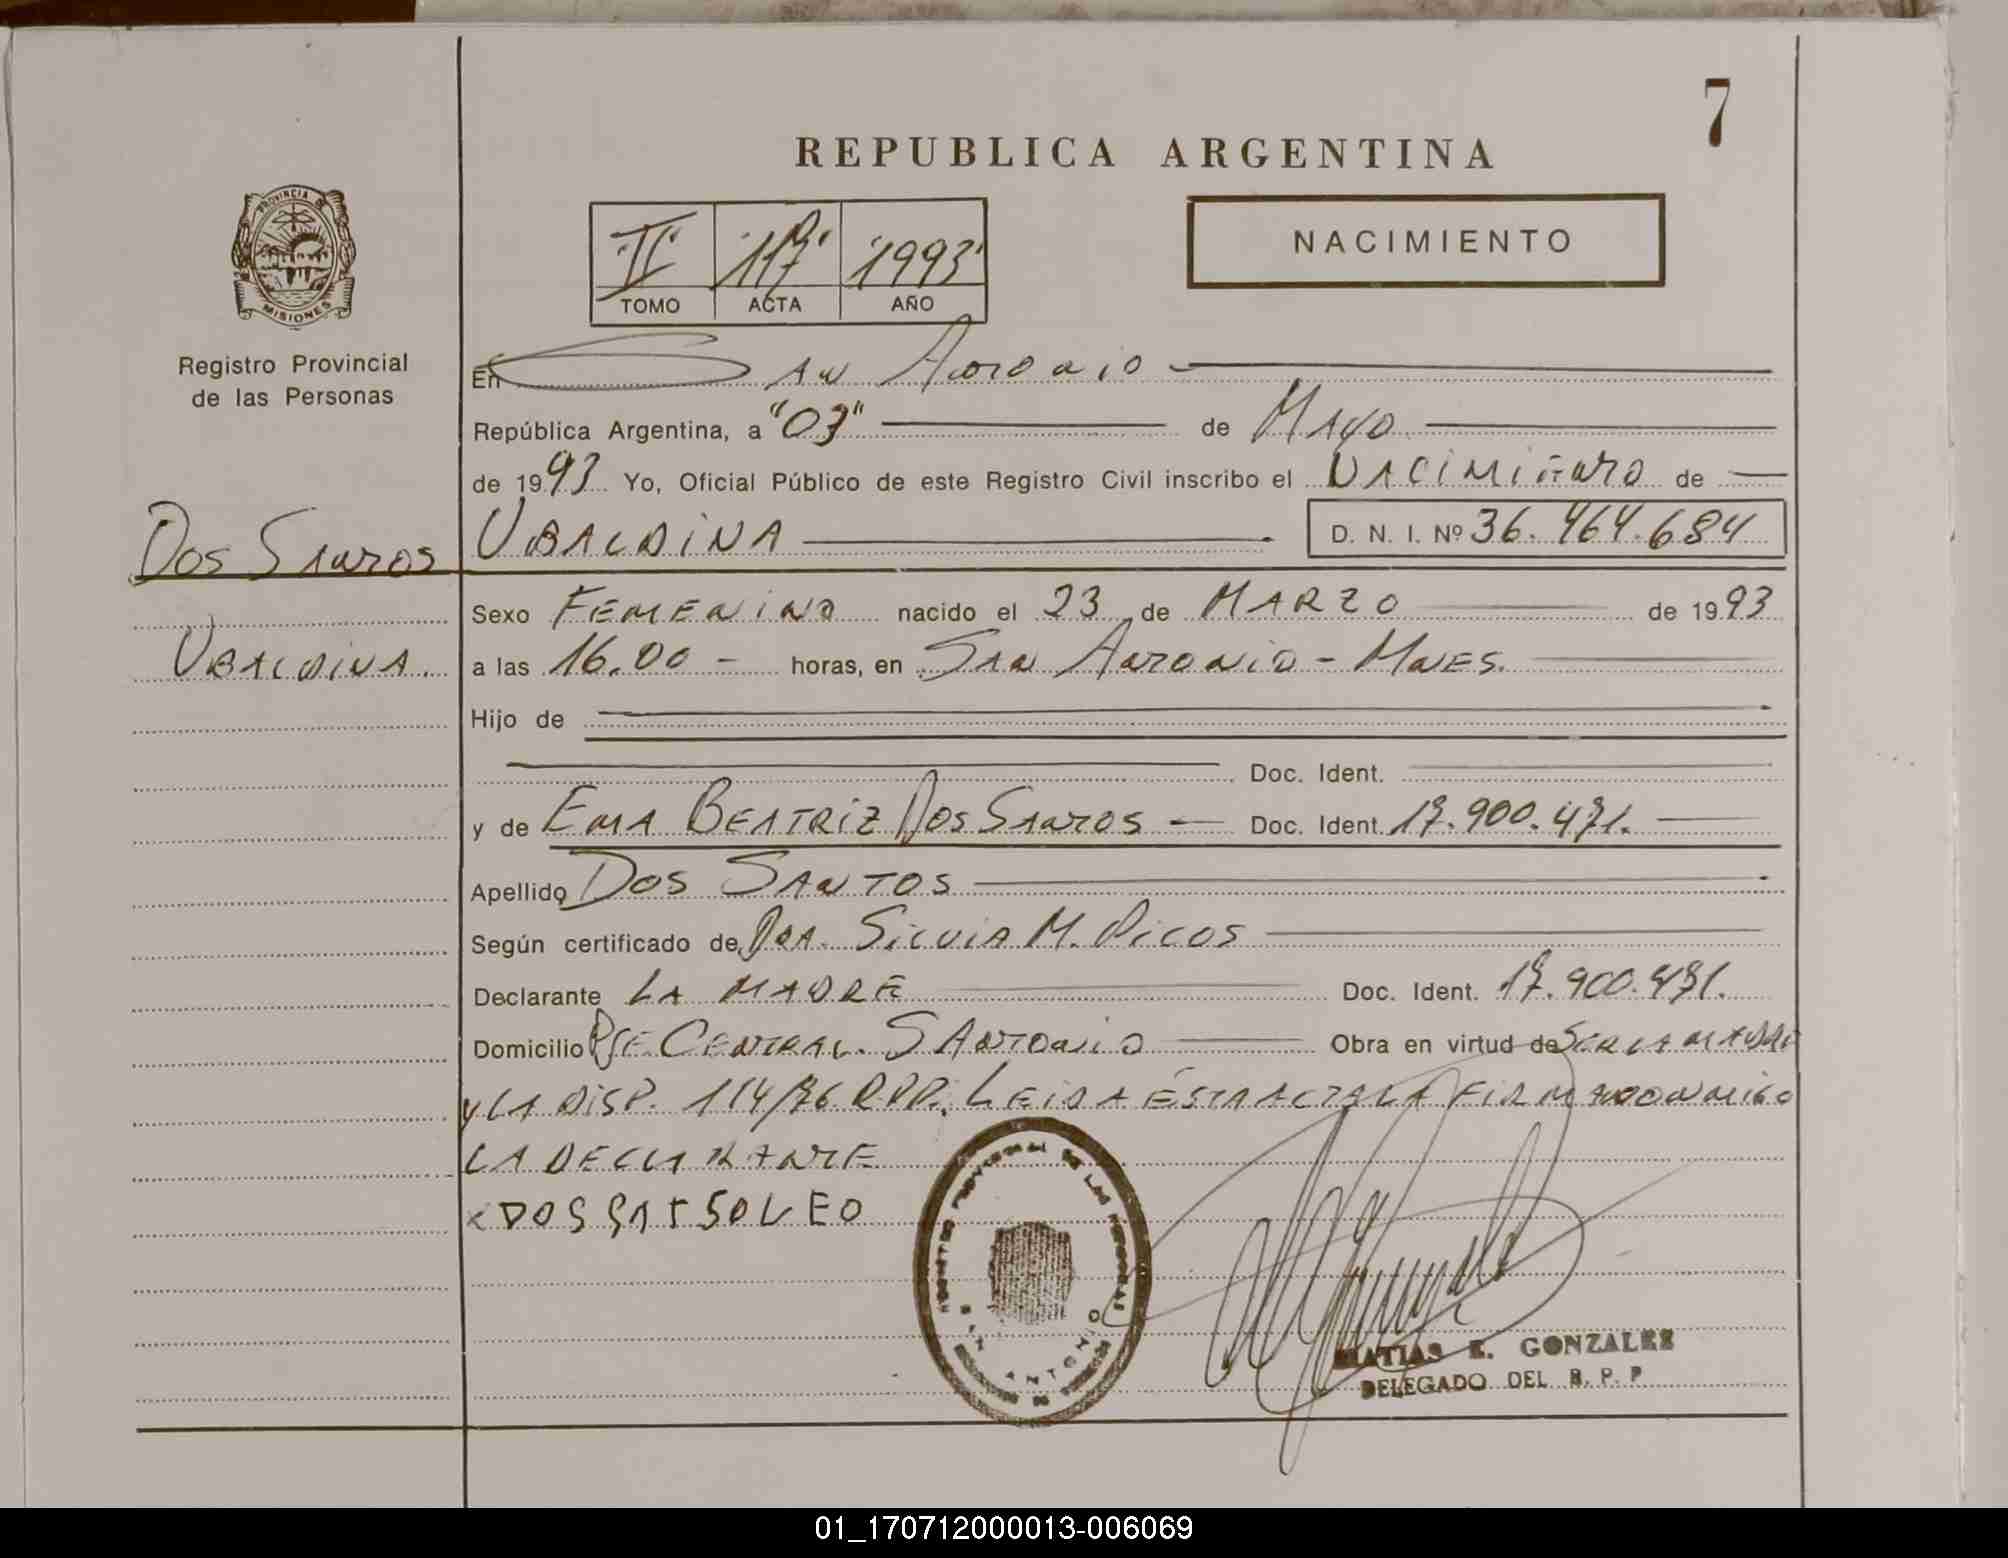 7
REPUBLICA ARGENTINA
PROVINCIA DE
MISIONES
Registro Provincial
de las Personas
"II" "117" "1993"
TOMO ACTA AÑO
NACIMIENTO
En San Antonio
República Argentina, a "03" de Mayo
de 1993 Yo, Oficial Público de este Registro Civil inscribo el NACIMIENTO de
Dos Santos
UBALDINA D. N. I. Nº 36.464.684
Sexo FEMENINO nacido el 23 de MARZO de 1993
UBALDINA.
a las 16.00 - horas, en San Antonio - Mnes.
Hijo de
Doc. Ident.
y de Ema Beatriz Dos Santos Doc. Ident. 17.900.471.
Apellido Dos Santos
Según certificado de Dra. Silvia M. Picos
Declarante LA MADRE Doc. Ident. 17.900.471.
Domicilio Pje Central. S Antonio Obra en virtud de SER LA MADRE
y LA DISP. 114/76 R.P.P. LEIDA ÉSTA ACTA LA FIRMA CONMIGO
LA DECLARANTE
DOS
REGISTRO PROVINCIAL DE LAS PERSONAS
SAN ANTONIO
MATIAS E. GONZALEZ
DELEGADO DEL R. P. P
01_170712000013-006069